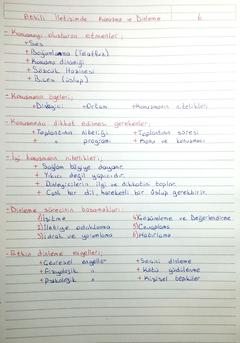 Etkili İletişimde Konuşma ve Dinleme 6
- Konuşmayı oluşturan etmenler;
+ Ses
+ Boğumlama (Telaffuz)
+ Konuşma dinamiği
+ Sözcük Hazinesi
+ Biçem (Üslup)
- Konuşmanın ögeleri;
+ Dinleyici + Ortam + Konuşmacının nitelikleri
- Konuşmada dikkat edilmesi gerekenler;
+ Toplantının niteliği + Toplantının süresi
+ " programı + Konu ve konuşmacı
- İyi konuşmanın nitelikleri;
+ Sağlam bilgiye dayanır.
+ Yıkıcı değil yapıcıdır.
+ Dinleyicilerin ilgi ve dikkatini toplar.
+ Canlı bir dil, hareketli bir üslup gerektirir.
- Dinleme sürecinin basamakları;
1) İşitme 4) Çözümleme ve Değerlendirme
2) İletiye odaklanma 5) Cevaplama
3) İdrak ve yorumlama 6) Hatırlama
- Etkin dinleme engelleri;
+ Çevresel engeller + Seçici dinleme
+ Fizyolojik " + Kötü güdülenme
+ Psikolojik " + Kişisel tepkiler